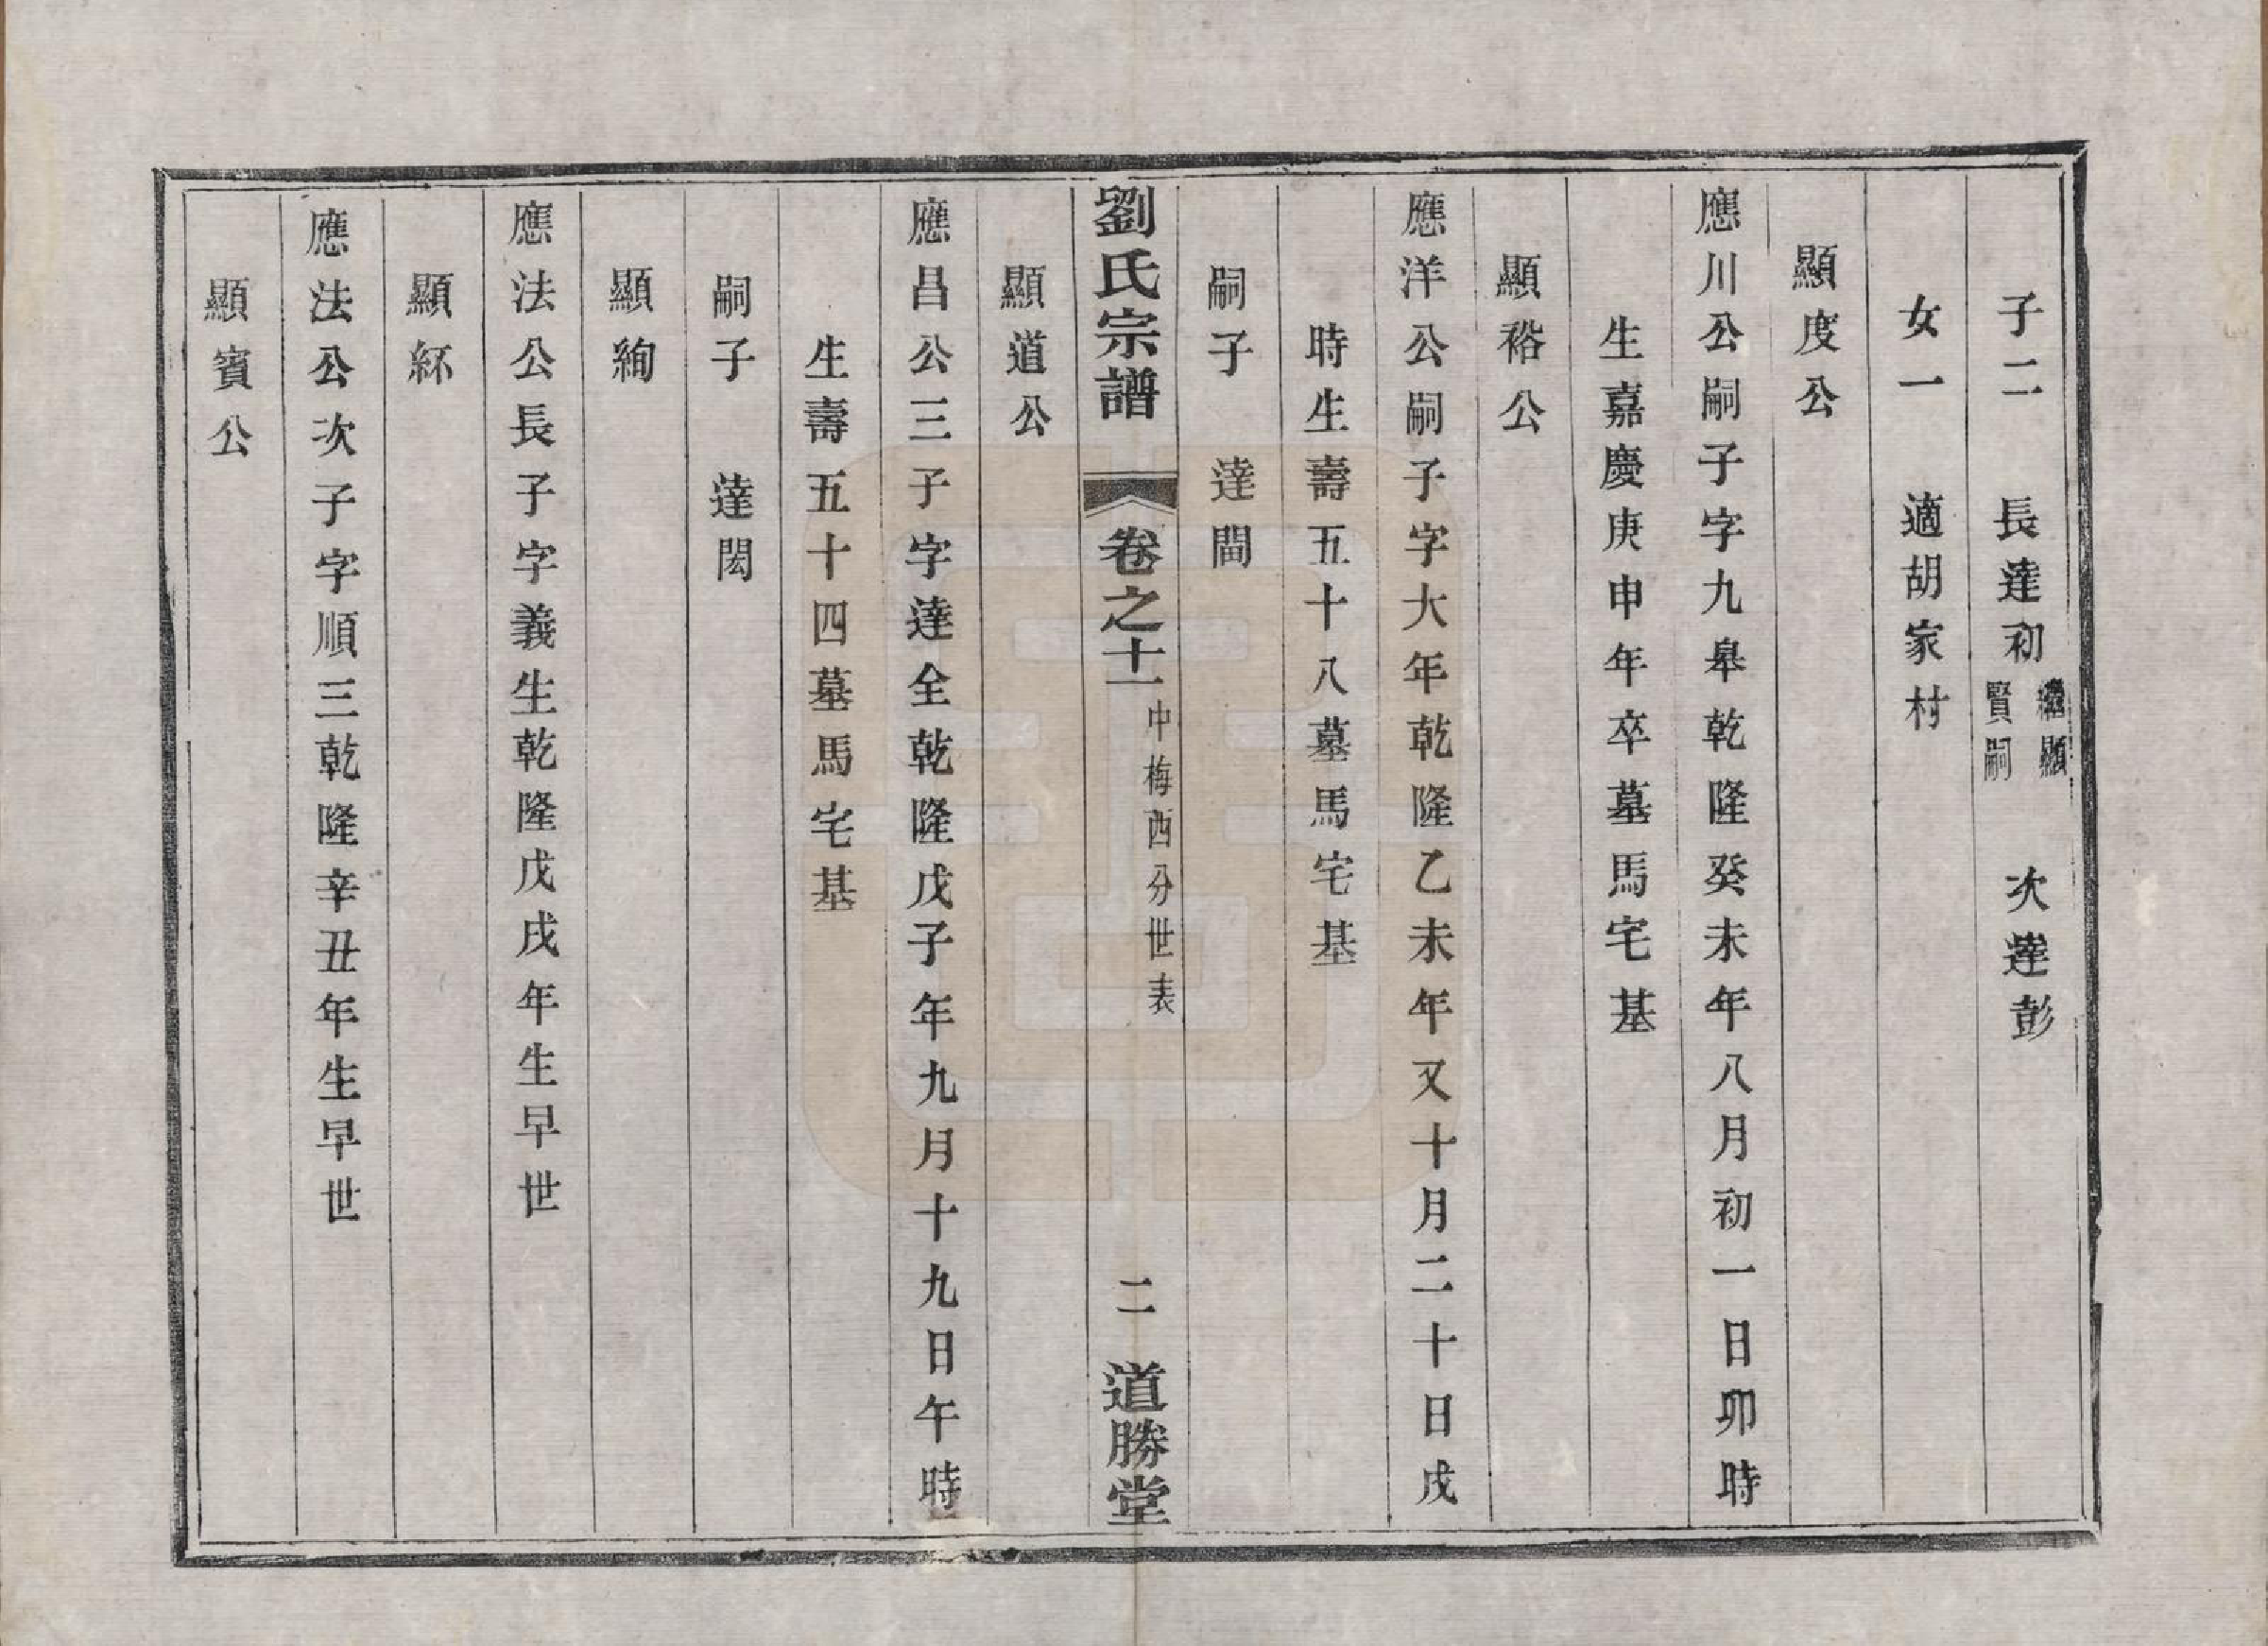 子二　長達初繼顯賢嗣　次達彭
女一　適胡家村
顯度公
應川公嗣子字九臯乾隆癸未年八月初一日卯時
生嘉慶庚申年卒墓馬宅基
顯裕公
應洋公嗣子字大年乾隆乙未年又十月二十日戌
時生壽五十八墓馬宅基
嗣子　達閶
劉氏宗譜　卷之十一　中梅西分世表　二　道勝堂
顯道公
應昌公三子字達全乾隆戊子年九月十九日午時
生壽五十四墓馬宅基
嗣子　達閎
顯絢
應法公長子字義生乾隆戊戌年生早世
顯紑
應法公次子字順三乾隆辛丑年生早世
顯賓公